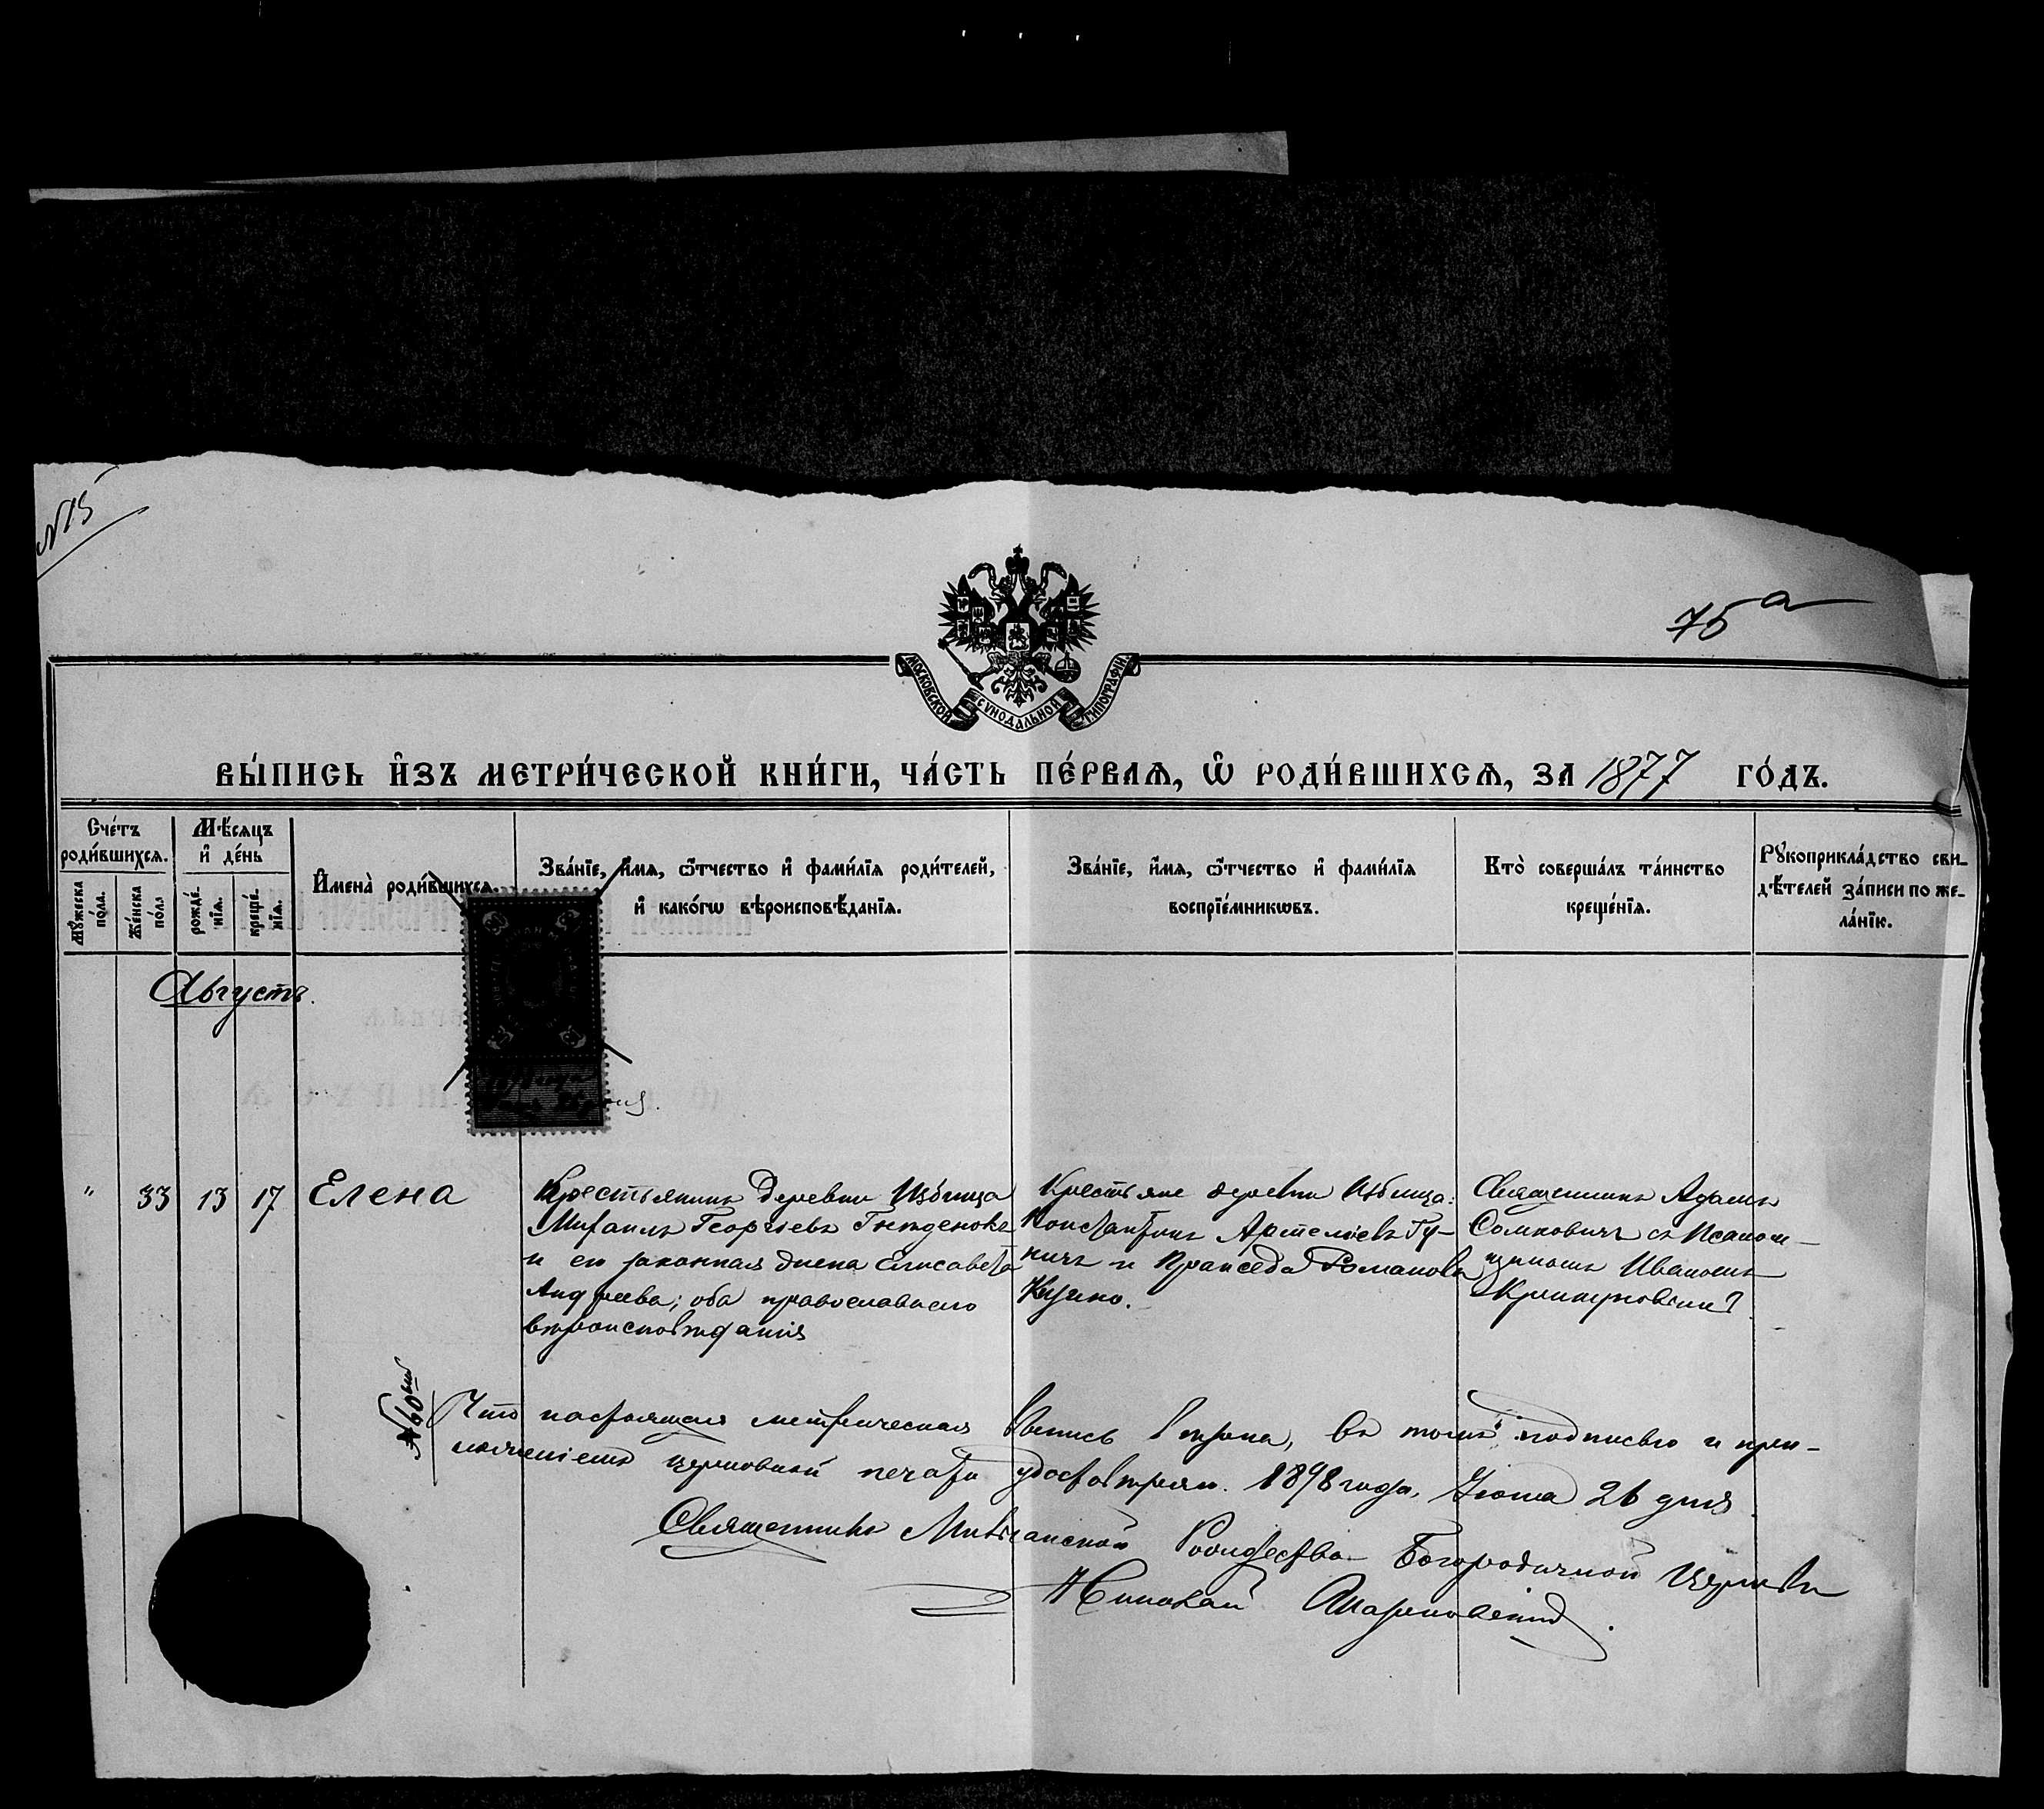 №15
75а
МОСКОВСКОЙ СѴНОДАЛЬНОЙ ТИПОГРАФІИ
ВЫ́ПИСЬ И҆ЗЪ МЕТРИ́ЧЕСКОЙ КНИ́ГИ, ЧА́СТЬ ПЕ́РВАѦ, Ѡ҆ РОДИ́ВШИХСѦ, ЗА 1877 ГО́ДЪ.
Сче́тъ роди́вшихсѧ.
Мꙋ́жеска по́ла.
Же́нска по́лꙋ
Мѣ́сѧцъ и҆ де́нь
рожде́нїѧ.
креще́нїѧ.
И҆мена̀ роди́вшихсѧ.
Зва́нїе, и҆́мѧ, ѻ҆́тчество и҆ фами́лїѧ роди́телей,
и҆ како́гѡ вѣроисповѣ́данїѧ.
Зва́нїе, и҆́мѧ, ѻ҆́тчество и҆ фами́лїѧ
воспрїе́мникѡвъ.
Кто̀ соверша́лъ та́инство
креще́нїѧ.
Рꙋкоприкла́дство сви-
дѣ́телей за́писи по же-
ла́нїю.
Августъ.
" 33 13 17 Елена
Крестьянинъ деревни Избища
Михаилъ Георгіевъ
и его законная жена Елисавета
Андреева; оба православнаго
вѣроисповѣданія
Крестьяне деревни Избища:
Константинъ Гу-
ничъ и Пракседа Романова
Священникъ Адамъ
Сомковичъ съ Псаломщ-
щикомъ Иваномъ
№ 60
Что настоящая метрическая выпись вѣрна, въ томъ подписью и при-
ложеніемъ церковной печати удостовѣряю. 1898 года, Іюня 26 дня
Священникъ Рождества Богородичной Церкви
Николай